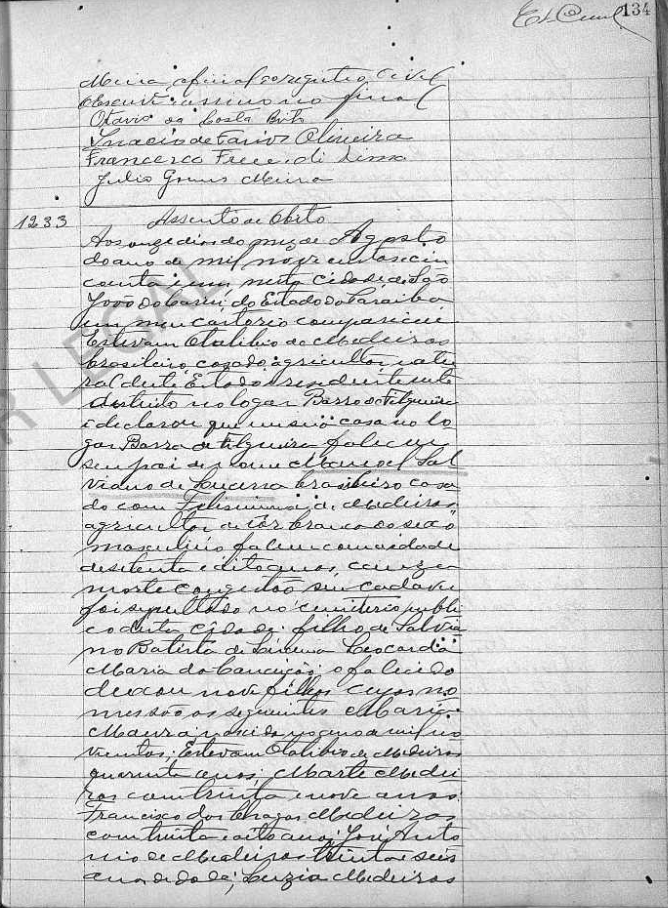 134
Meira, oficial do registro civil
o escrevi e assino no final
Otavio da Costa Brito
Inacio de Farias Oliveira
Francesco Free di Lima
Julio Gomes Meira
1233
Assento de Obito
Aos onze dias do mez de Agosto
do ano de mil novecentos e cin
coenta e um nesta cidade de São
João do Cariri do Estado da Paraiba
em meu cartorio compareceu
Estevam Otalibio de Medeiros
brasileiro, casado, agricultor, natu
ral deste Estado e residente neste
distrito no logar Barra de Filgueira
e declarou que em sua casa no lo
gar Barra de Filgueira faleceu
seu pai de nome Manoel Sal
viano de Lucena brasileiro casa
do com de Medeiros,
agricultor de côr branca do sexo
masculino faleceu com a idade
de setenta e oito anos, causa
morte congestão seu cadaver
foi sepultado no cemiterio publi
co desta cidade. filho de Salvia
no Batista de Lucena e Leocardia
Maria da Conceição, o falecido
deixou nove filhos cujos no
mes são os seguintes Maria
Moura nascida no ano de mil no
vecentos; Estevam Otalibio de Medeiros
quarenta anos; Marte Medei
ros com trinta e nove anos
Francisco das Chagas Medeiros
com trinta e oito anos; José Anto
nio de Medeiros trinta e seis
anos de idade; Luzia Medeiros